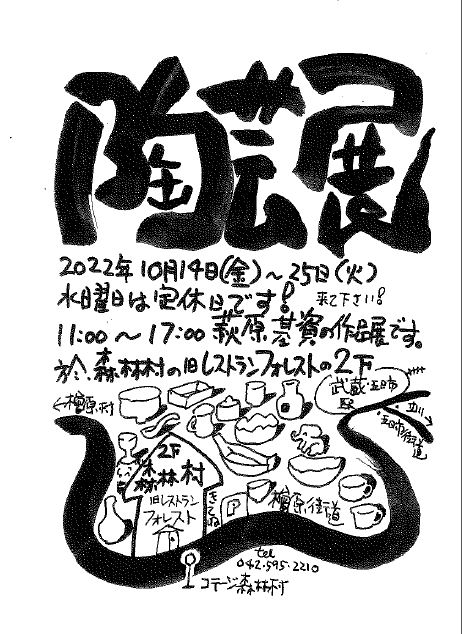 陶芸展
2022年10月14日(金)～25日(火)
水曜日は定休日です! 来て下さい!
11:00～17:00 萩原基資の作品展です。
於、森林村の旧レストランフォレストの2F
←檜原村
武蔵・五日市駅
立川→
五日市街道
2F
森林村
旧レストラン
フォレスト
きてね
P
檜原街道
tel
042・595・2210
コテージ森林村